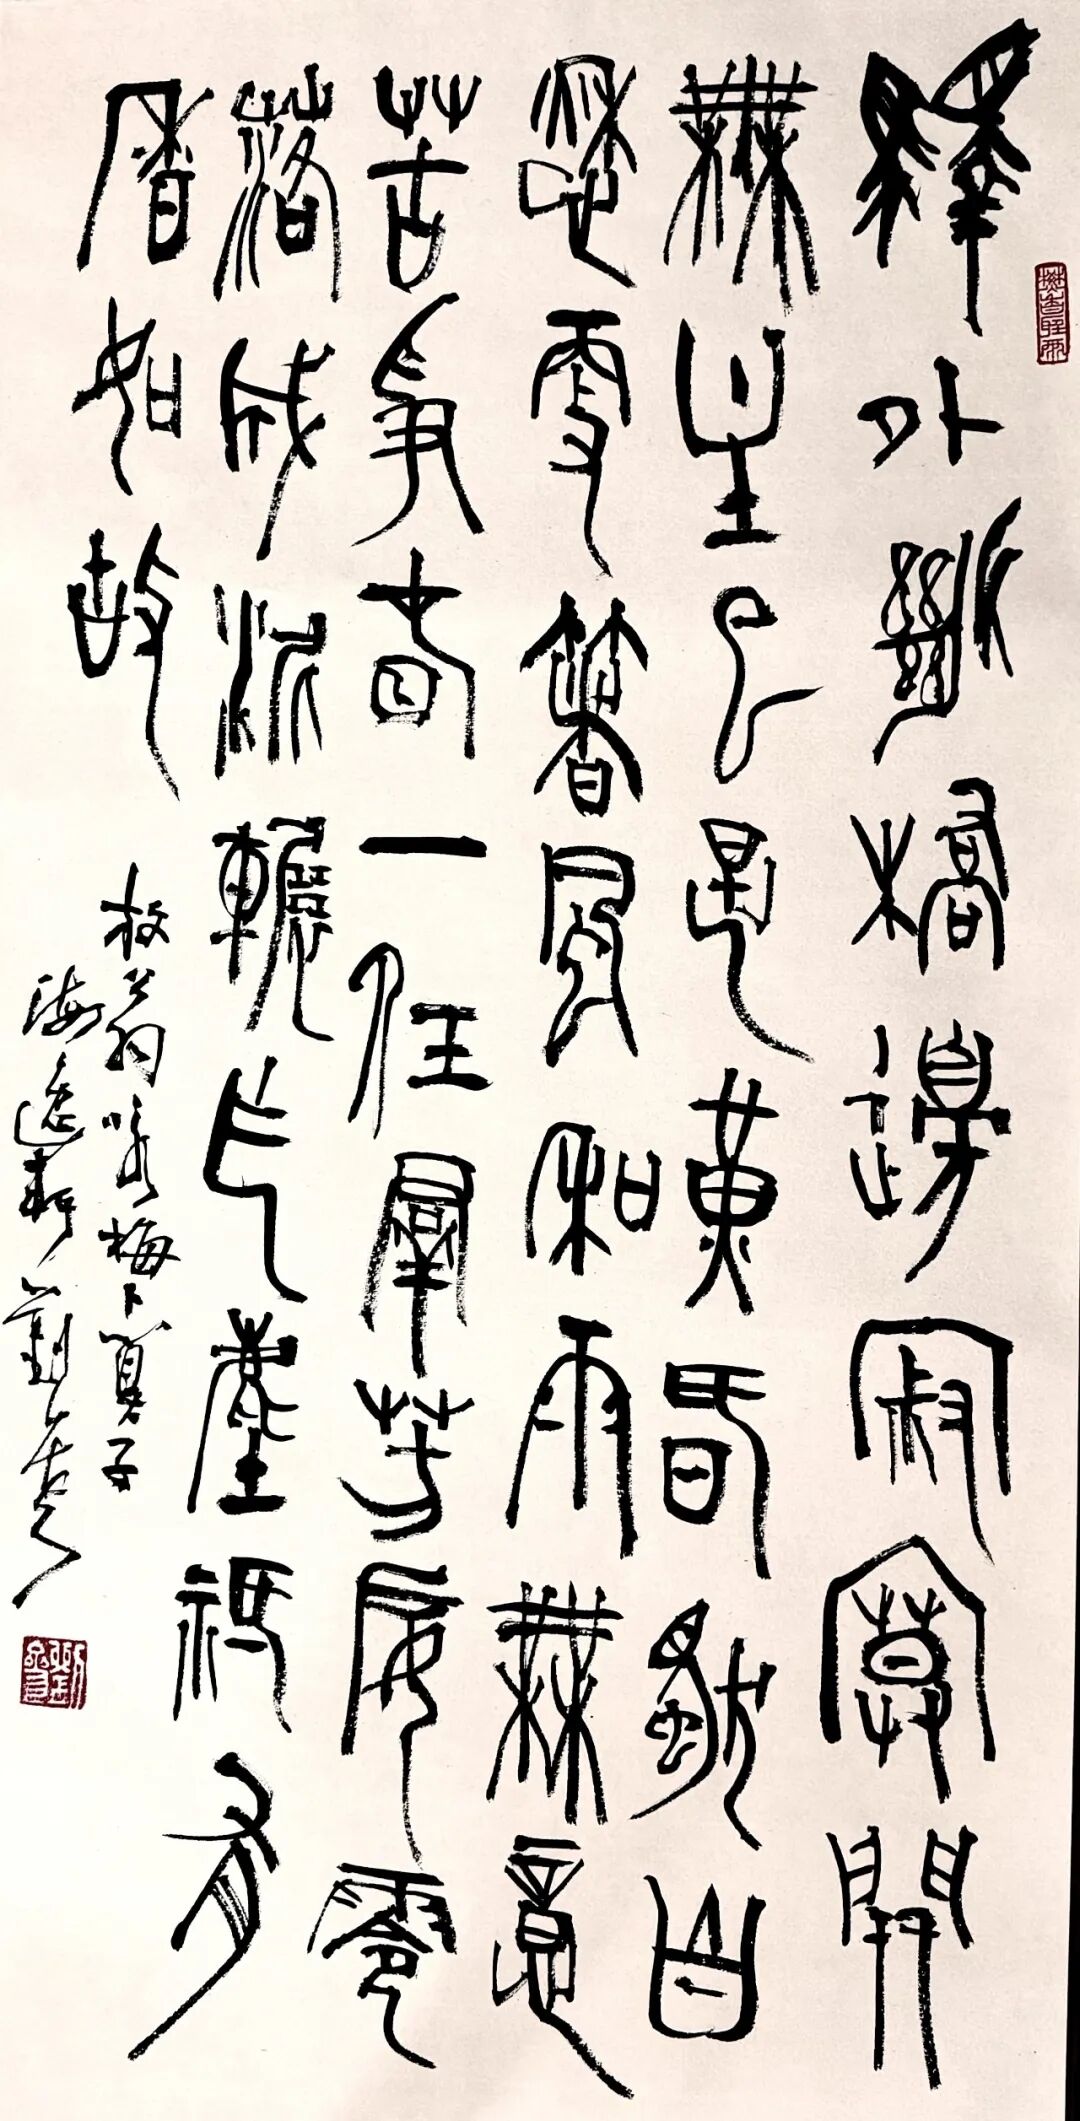 驛外斷橋邊寂寞開
無主已是黃昏獨自
愁更著風和雨無意
苦爭春一任羣芳妒零
落成泥輾作塵祇有
香如故
放翁咏梅卜算子
海逸軒劉